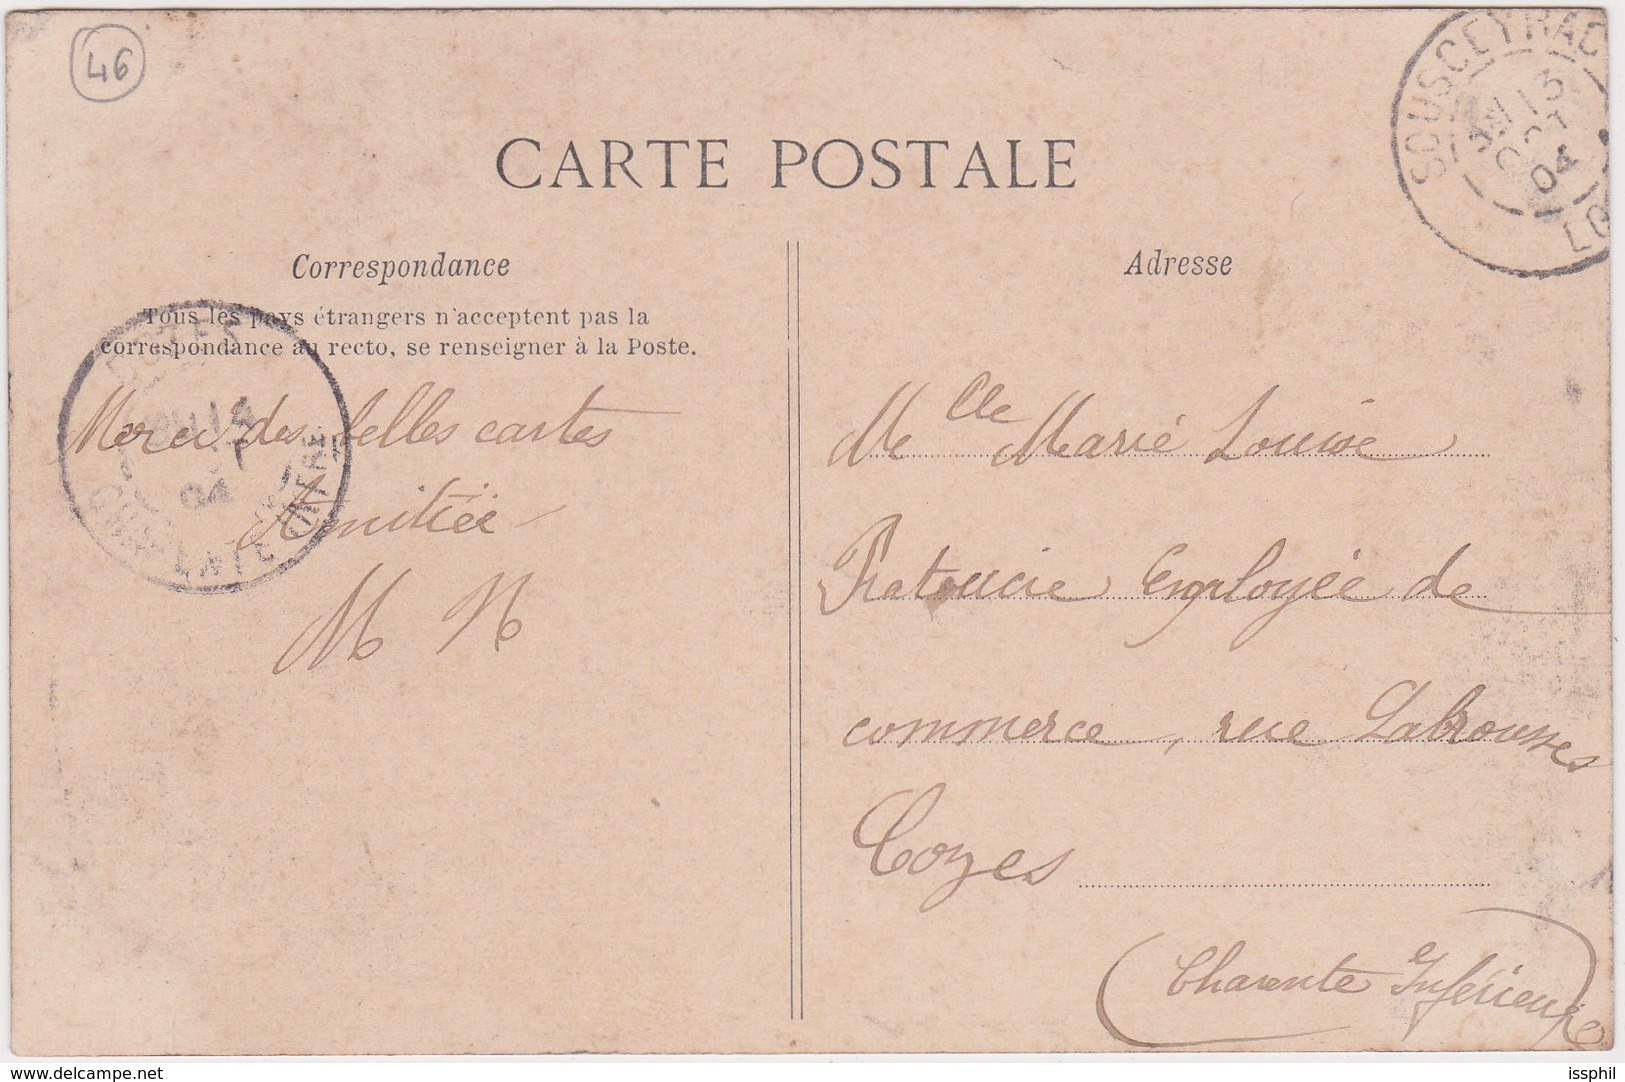 46
CARTE POSTALE
SOUSCEYRAC
13
OCT
04
LOT
Correspondance
Tous les pays étrangers n'acceptent pas la
correspondance au recto, se renseigner à la Poste.
COZES
04
Merci des belles cartes
Amitiée
M N
Adresse
Melle Marie Louise
Employée de
commerce, rue Labrousses
Cozes
(Charente Inférieure)
www.delcampe.net
issphil